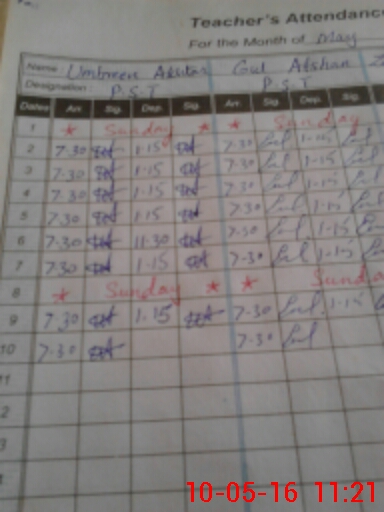 Teacher's Attendance
For the Month of May
Name: Umbreen Akhtar Gul Afshan
Designation: P.S.T P.S.T
Dates Arr. Sig. Dep. Sig. Arr. Sig. Dep. Sig.
1 * Sunday * * Sunday
2 7-30 1-15 7-30 Gul 1-15 Gul
3 7-30 1-15 7-30 Gul 1-15 Gul
4 7-30 1-15 7-30 Gul 1-15 Gul
5 7-30 1-15 7-30 Gul 1-15 Gul
6 7-30 11-30 7-30 Gul Gul
7 7-30 1-15 7-30 Gul 1-15 Gul
8 * Sunday * * Sunday
9 7-30 1-15 7-30 Gul 1-15
10 7-30 7-30 Gul
11
2
3
10-05-16 11:21